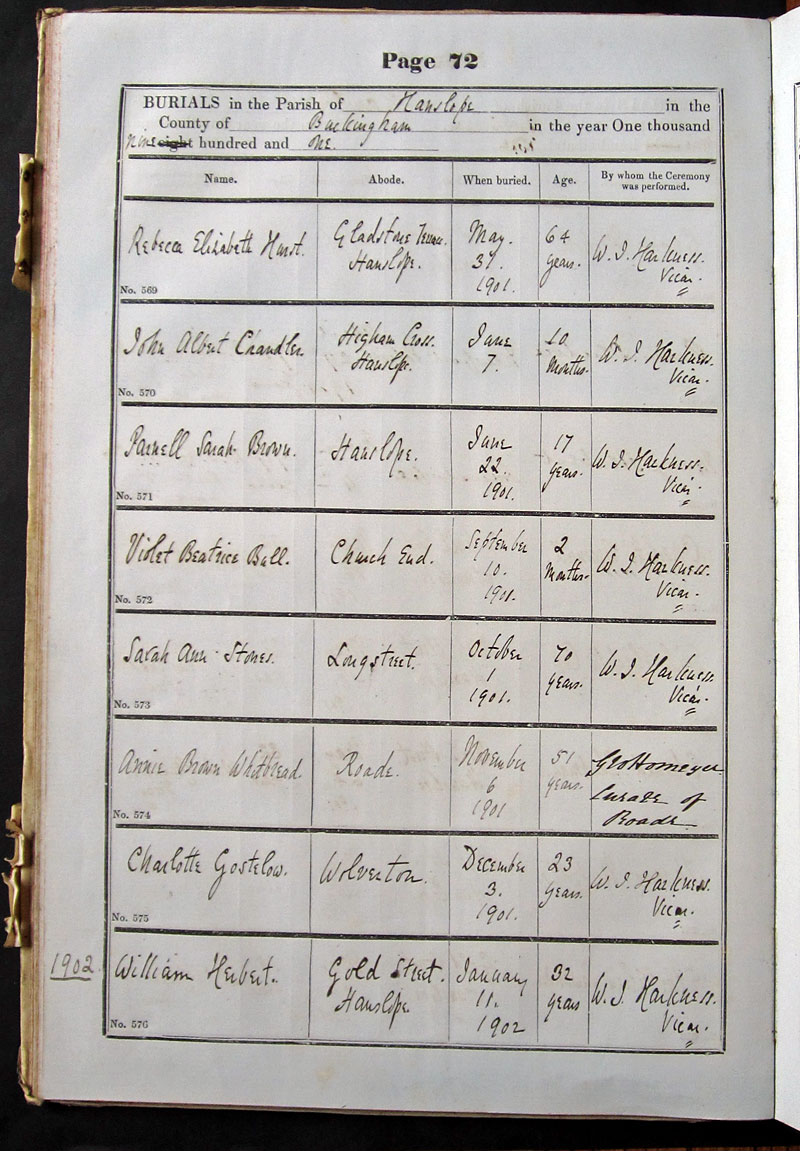 Page 72
BURIALS in the Parish of Hanslope in the
County of Buckingham in the year One thousand
nine eight hundred and one.
Name. Abode. When buried. Age. By whom the Ceremony was performed.
Rebecca Elizabeth Hurst. Gladstone Terrace. May. 64 W. J. Harkness.
Hanslope. 31. years. Vicar.
No. 569 1901.
John Albert Chandler. Higham Cross. June 10 W. J. Harkness.
Hanslope. 7. Months. Vicar.
No. 570
Parnell Sarah Brown. Hanslope. June 17 W. J. Harkness.
22. years. Vicar.
No. 571 1901.
Violet Beatrice Bull. Church End. September 2 W. J. Harkness.
10. Months. Vicar.
No. 572 1901.
Sarah Ann Stones. Longstreet. October 70 W. J. Harkness.
1 years. Vicar.
No. 573 1901.
Annie Brown Whitbread. Roade. November 51
6 years. Curate of
No. 574 1901 Roade.
Charlotte Gostelow. Wolverton. December 23 W. J. Harkness.
3. years. Vicar.
No. 575 1901.
1902 William Herbert. Gold Street. January 32 W. J. Harkness.
Hanslope. 11. years Vicar.
No. 576 1902